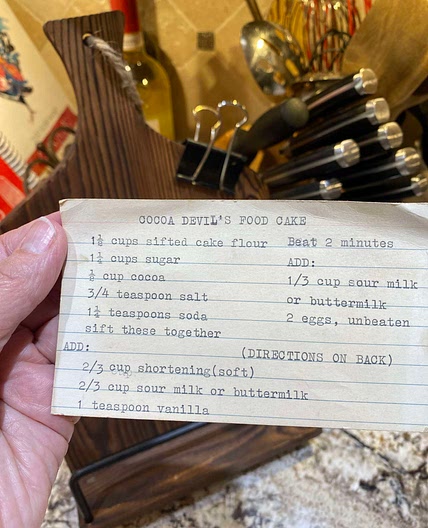 COCOA DEVIL'S FOOD CAKE
1½ cups sifted cake flour
1¼ cups sugar
½ cup cocoa
3/4 teaspoon salt
1¼ teaspoons soda
sift these together
ADD:
2/3 cup shortening(soft)
2/3 cup sour milk or buttermilk
1 teaspoon vanilla
Beat 2 minutes
ADD:
1/3 cup sour milk
or buttermilk
2 eggs, unbeaten
(DIRECTIONS ON BACK)